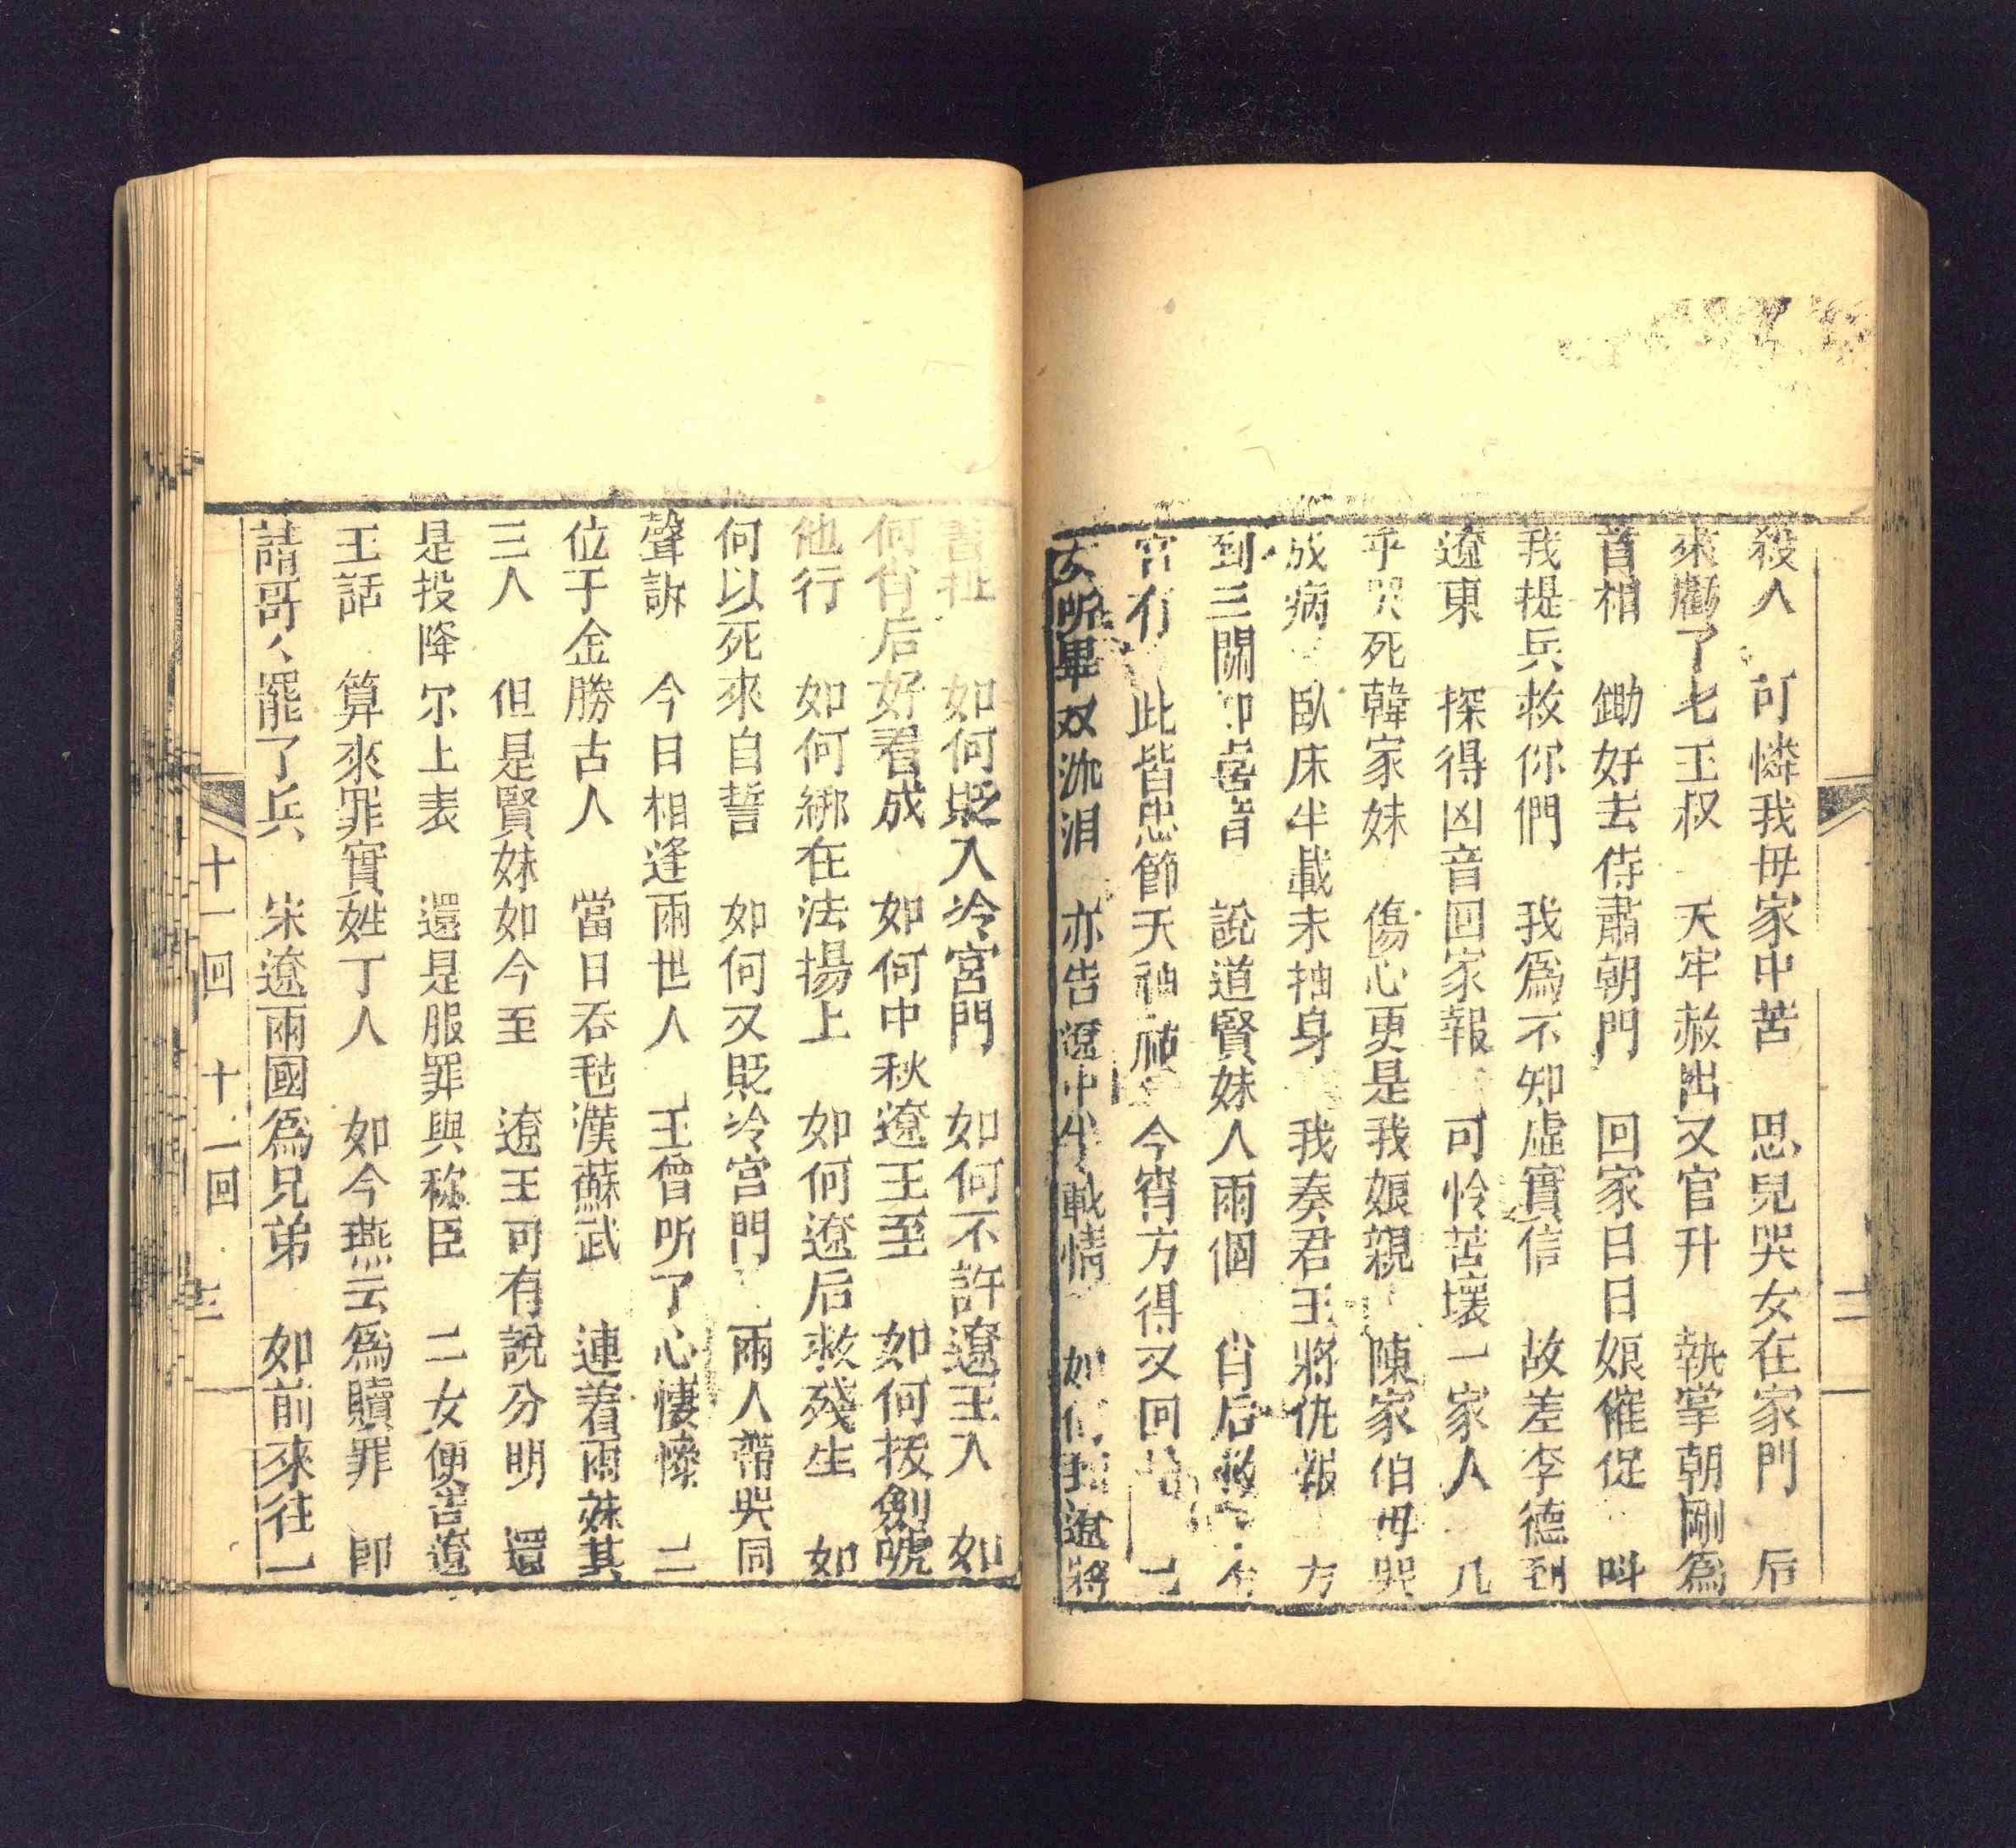 殺人　可憐我母家中苦　思兒哭女在家門　后
來虧了七王叔　天牢赦出又官升　執掌朝剛爲
首相　鋤好去侍肅朝門　回家日日娘催促　呌
我提兵救你們　我爲不知虛實信　故差李德到
遼東　探得凶音回家報　可怜苦壞一家人　几
乎哭死韓家妹　傷心更是我娘親　陳家伯母哭
成病　臥床半載未抽身　我奏君王將仇報　方
到三關　說道賢妹人兩個　肖后
宮有　此皆忠節天　今宵方得又回　
女听畢双流泪　亦告遼中　載情　如何　遼將
二
如何貶入冷宮門　如何不許遼王入　如
何肖后好看成　如何中秋遼王至　如何拔劍號
他行　如何綁在法揚上　如何遼后救殘生　如
何以死來自誓　如何又貶冷宮門　兩人帶哭同
聲訴　今日相逢兩世人　王曾听了心悽慘　二
位于金勝古人　當日吞毡漢蘇武　連着兩妹其
三人　但是賢妹如今至　遼王可有說分明　還
是投降尔上表　還是服罪與称臣　二女便告遼
王話　算來罪實姓丁人　如今燕云爲贖罪　即
請哥々罷了兵　宋遼兩國爲兄弟　如前來往一
十一回　十一回　三